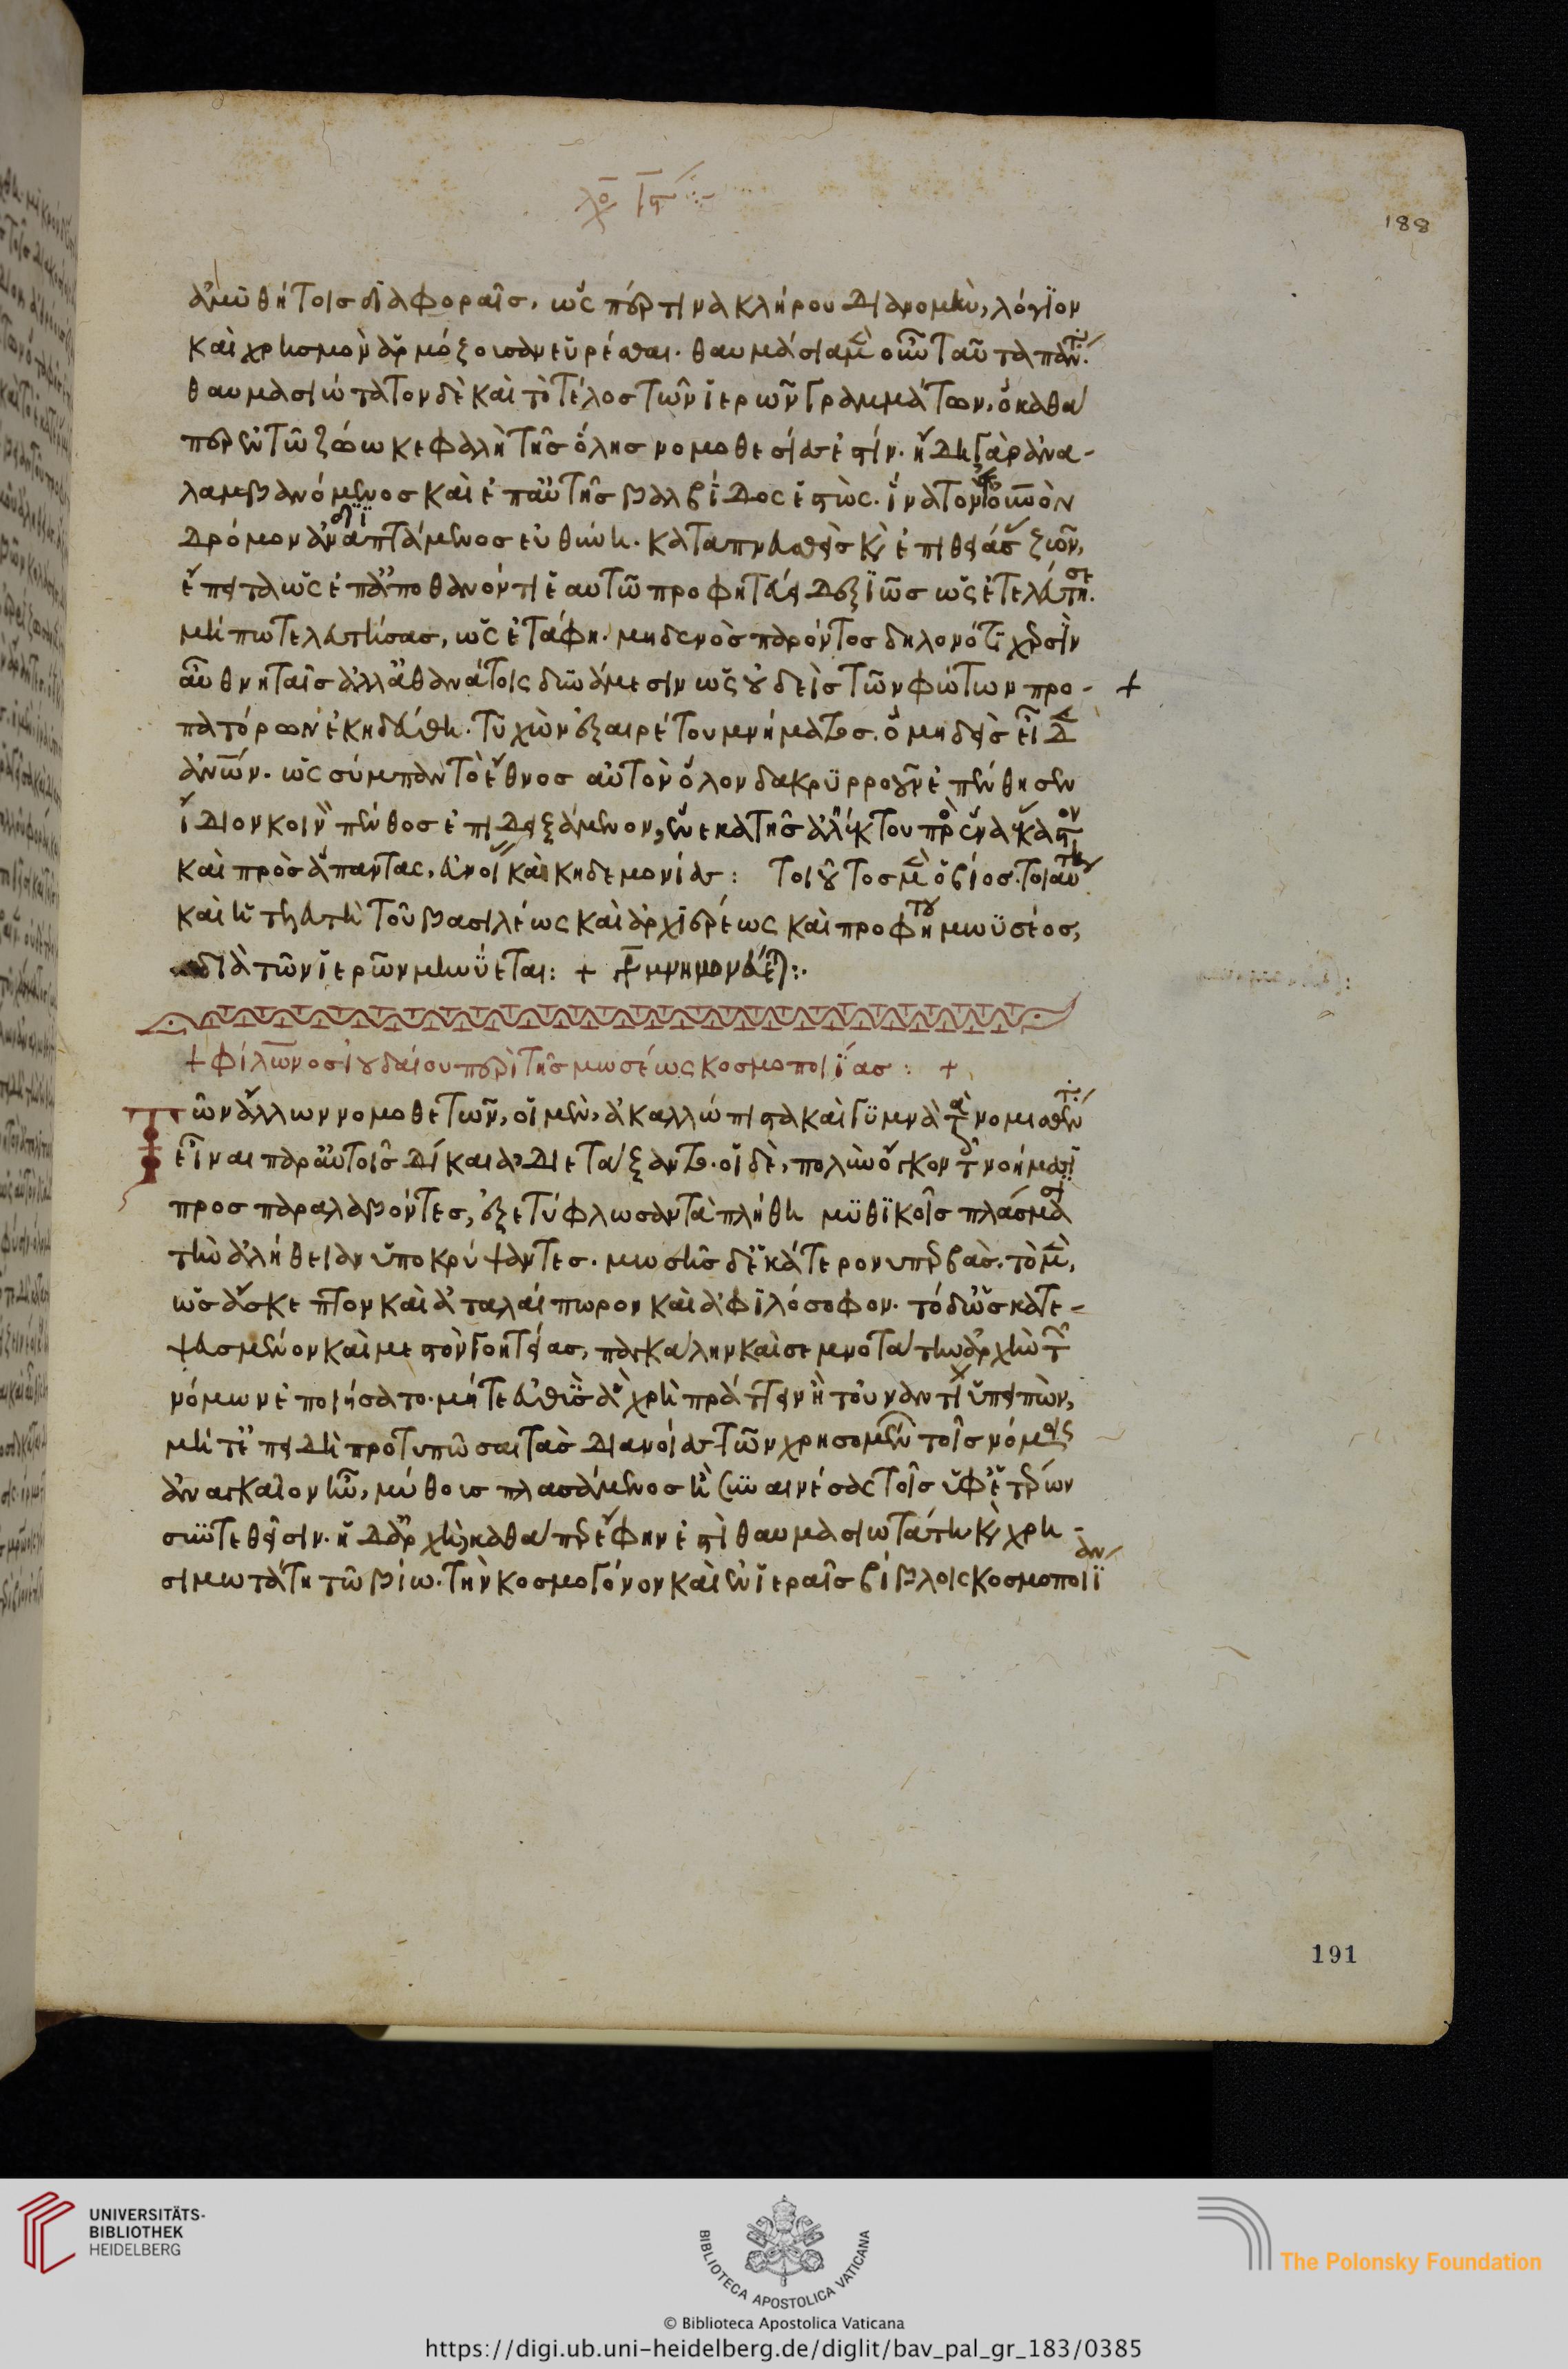 188
ἀμυθήτοις διαφοραῖς, ὡς πρός τινα κλήρου διανομὴν, λόγιον
καὶ χρησμὸν ἁρμόζουσαν εὑρέσθαι. θαυμάσια μὲν οὖν ταῦτα πάντ.
θαυμασιώτατον δὲ καὶ τὸ τέλος τῶν ἱερῶν γραμμάτων, ὃ καθά
περ ἐν τῷ ζώῳ κεφαλὴ τῆς ὅλης νομοθεσίας ἐστίν. ἤδη γὰρ ἀνα-
λαμβανόμενος καὶ ἐπ αὐτῆς βαλβίδος ἑστὼς. ἵνα τὸν εἰς οὐνὸν
δρόμον διιπτάμενος εὐθύνη. καταπνευσθεὶς κ(αὶ) ἐπιθειάσας ζῶν,
ἔτι τὰ ὡς ἐπ ἀποθανόντι ἑαυτῶ προφητεύει δεξιῶς ὡς ἐτελεύτησε.
μήπω τελευτήσας, ὡς ἐτάφη. μηδενὸς παρόντος δηλονότι χερσὶν
οὐ θνηταῖς ἀλλ ἀθανάτοις δυνάμεσιν ὡς οὐδεὶς τῶν φώτων προ- +
πατόρων ἐκηδεύθη. τυχὼν ἐξαιρέτου μνήματος. ὃ μηδεὶς εἶδεν
ἀνων. ὡς σύμπαν τὸ ἔθνος αὐτὸν ὅλον δακρυρροοῦν ἐπένθησεν
ἴδιον κοινὸν πένθος ἐπιδειξάμενον, ἕνεκα τῆς ἀλέκτου πρὸς ἕνα ἕκαστον
καὶ πρὸς ἅπαντας, εὐνοίας καὶ κηδεμονίας: τοιοῦτος μὲν ὁ βίος. τοιαύτη
καὶ ἡ τελευτὴ τοῦ βασιλέως καὶ ἀρχιερέως καὶ προφήτου μωυσέος,
διὰ τῶν ἱερῶν μηνύεται: +
+ φίλωνος ἰουδαίου περὶ τῆς μωσέως κοσμοποιίας: +
Τῶν ἄλλων νομοθετῶν, οἱ μὲν, ἀκαλλώπιστα καὶ γυμνὰ τὰ νομισθέντ
εἶναι παρ αὐτοῖς δίκαια διετάξαντο. οἱ δὲ, πολὺν ὄγκον τοῖς νοήμασι
προσπαραλαβόντες, ἐξετύφλωσαν τὰ πλήθη μυθικοῖς πλάσμασι
τὴν ἀλήθειαν ὑποκρύψαντες. μωσῆς δ ἑκάτερον ὑπερβὰς. τὸ μὲν,
ὡς ἄσκεπτον καὶ ἀταλαίπωρον καὶ ἀφιλόσοφον. τὸ δ ὡς κατε-
ψευσμένον καὶ μεστὸν γοητείας, παγκάλην καὶ σεμνοτά την ἀρχὴν τῶν
νόμων ἐποιήσατο. μήτ εὐθὺς ἃ χρὴ πράττειν ἢ τουναντίον ὑπειπὼν,
μήτ ἐπειδὴ προτυπῶσαι τὰς διανοίας τῶν χρησομένων τοῖς νόμοις
ἀναγκαῖον ἦν, μύθους πλασάμενος ἢ συναινέσας τοῖς ὑφ ἑτέρων
συντεθεῖσιν. ἡ δ ἀρχὴ, καθάπερ ἔφην ἐστὶ θαυμασιωτάτη κ(αὶ) χρη-
σιμωτάτη τῶ βίω. τὴν κοσμογόνον καὶ ἐν ἱεραῖς βίβλοις κοσμοποιίαν
191
UNIVERSITÄTS-
BIBLIOTHEK
HEIDELBERG
BIBLIOTECA APOSTOLICA VATICANA
The Polonsky Foundation
© Biblioteca Apostolica Vaticana
https://digi.ub.uni-heidelberg.de/diglit/bav_pal_gr_183/0385